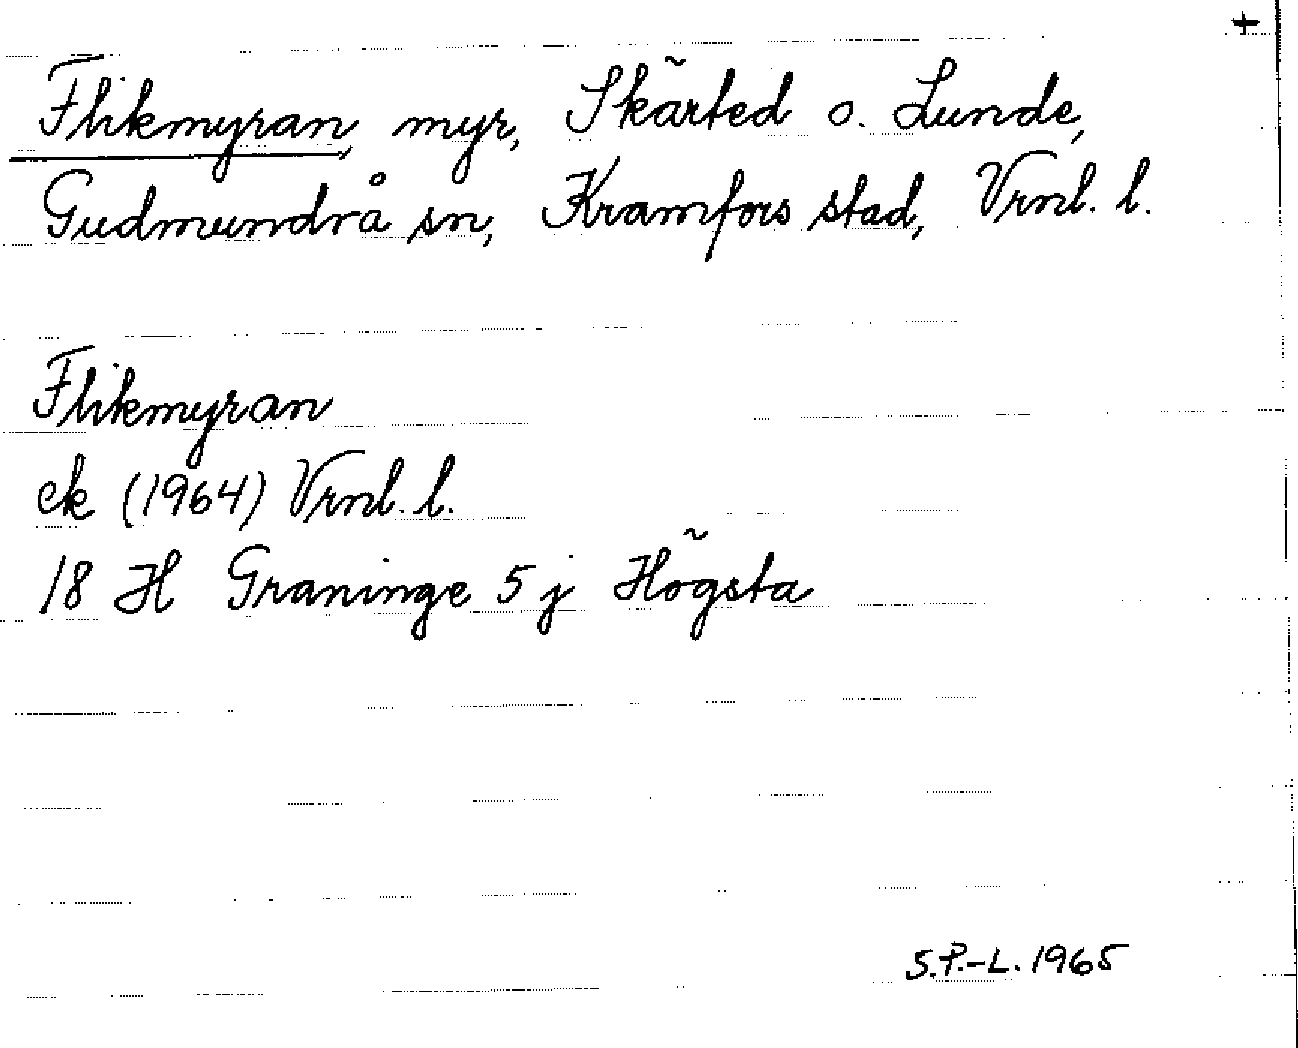 +
Flikmyran, myr, Skärted o. Lunde,
Gudmundrå sn, Kramfors stad, Vrnl. l.
Flikmyran
ek (1964) Vrnl. l.
18 H Graninge 5 j Högsta
S.P.-L. 1965